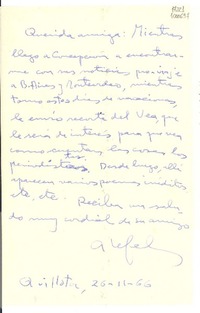 Querida amiga: Mientras
llego a Concepción a encontrar-
me con sus noticias, previo viaje
a B. Aires y Montevideo, mientras
tomo estos días de vacaciones,
le envío recorte del Vea que
le será de interés para que vea
como cuentan las cosas los
periodistas. Desde luego, allí
aparecen varios poemas inéditos
etc, etc. Reciba un salu-
do muy cordial de su amigo
Quillota, 26-11-66